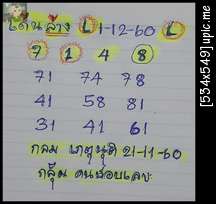 เด่นล่าง L 1-12-60 L
7 1 4 8
71 74 78
41 58 81
31 41 61
กลม เกตุนุติ 21-11-60
กลุ่ม คนชอบเลข
[534x549] upic.me